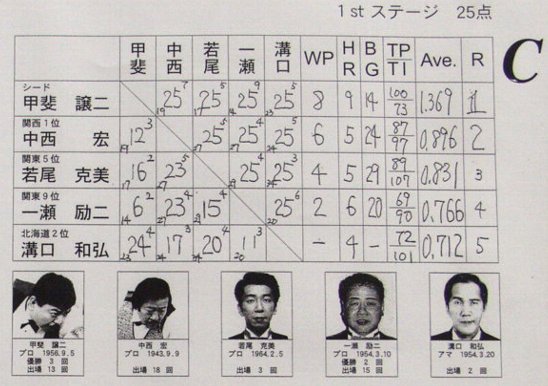 1stステージ 25点
C
甲斐 中西 若尾 一瀬 溝口 WP HR BG TP/TI Ave. R
シード
甲斐 譲二 25 7 19 25 5 17 25 9 25 5 8 9 14 100/73 1.369 1
関西1位
中西 宏 12 3 19 25 5 27 25 4 25 5 6 5 24 87/97 0.896 2
関東5位
若尾 克美 16 2 17 23 5 27 25 4 25 3 4 5 29 89/107 0.831 3
関東9位
一瀬 励二 6 2 14 23 4 27 15 4 25 6 20 2 6 20 69/90 0.766 4
北海道2位
溝口 和弘 24 4 23 17 3 20 4 11 3 20 - 4 - 72/101 0.712 5
甲斐 譲二 中西 宏 若尾 克美 一瀬 励二 溝口 和弘
プロ 1956.9.5 プロ 1943.9.9 プロ 1964.2.5 プロ 1954.3.10 アマ 1954.3.20
優勝 3 回 優勝 2 回
出場 13 回 出場 18 回 出場 6 回 出場 15 回 出場 2 回